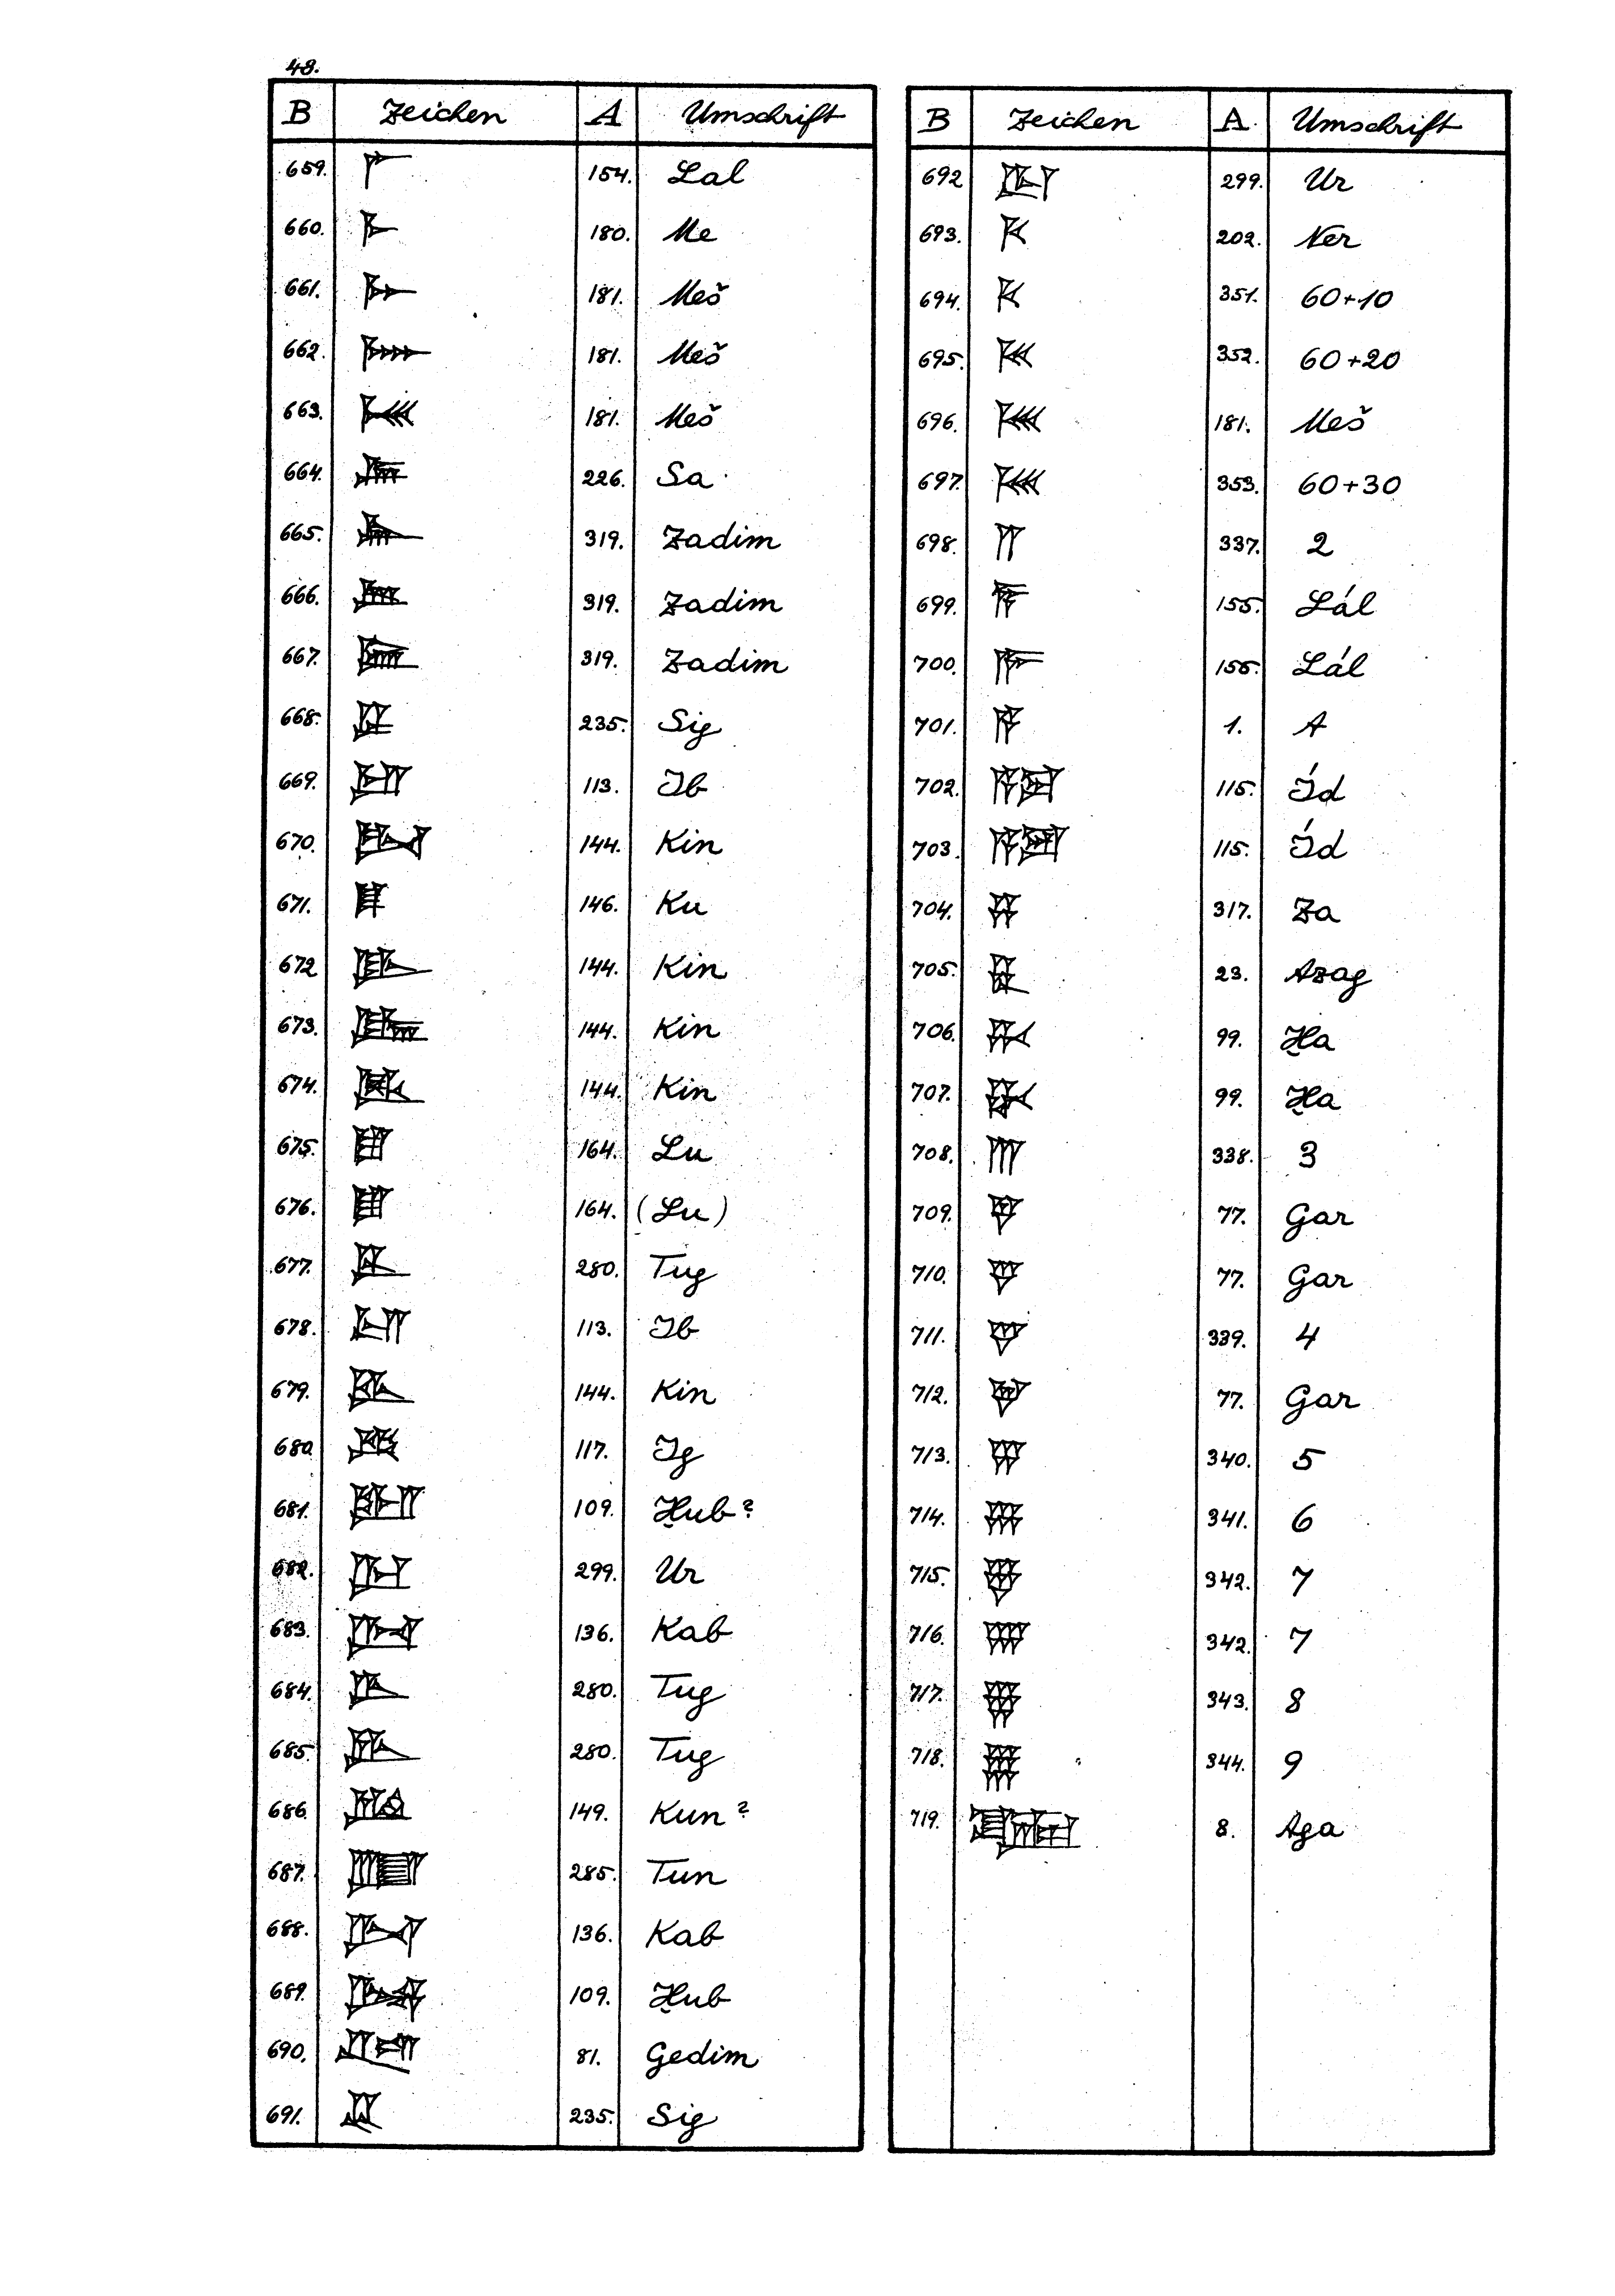 48.
B Zeichen A Umschrift
659. 𒇲 154. Lal
660. 𒈨 180. Me
661. 181. Meš
662. 181. Meš
663. 𒈨𒌍 181. Meš
664. 226. Sa
665. 319. Zadim
666. 319. Zadim
667. 319. Zadim
668. 235. Sig
669. 113. Ib
670. 144. Kin
671. 146. Ku
672 144. Kin
673. 144. Kin
674. 144. Kin
675. 164. Lu
676. 164. (Lu)
677. 280. Tug
678. 113. Ib
679. 144. Kin
680. 117. Ig
681. 109. Ḫub?
682. 299. Ur
683. 136. Kab
684. 280. Tug
685. 280. Tug
686. 149. Kun?
687. 285. Tun
688. 136. Kab
689. 109. Ḫub
690. 81. Gedim
691. 235. Sig
B Zeichen A. Umschrift
692 299. Ur
693. 202. Ner
694. 351. 60+10
695. 352. 60+20
696. 181. Meš
697. 353. 60+30
698. 𒈫 337. 2
699. 155. Lál
700. 155. Lál
701. 𒀀 1. A
702. 115. Íd
703. 115. Íd
704. 𒍝 317. Za
705. 23. Azag
706. 𒄩 99. Ḫa
707. 99. Ḫa
708. 𒐈 338. 3
709. 77. Gar
710. 77. Gar
711. 𒐉 339. 4
712. 77. Gar
713. 𒐊 340. 5
714. 𒐋 341. 6
715. 𒐌 342. 7
716. 342. 7
717. 𒐍 343. 8
718. 𒐎 344. 9
719. 8. Aga